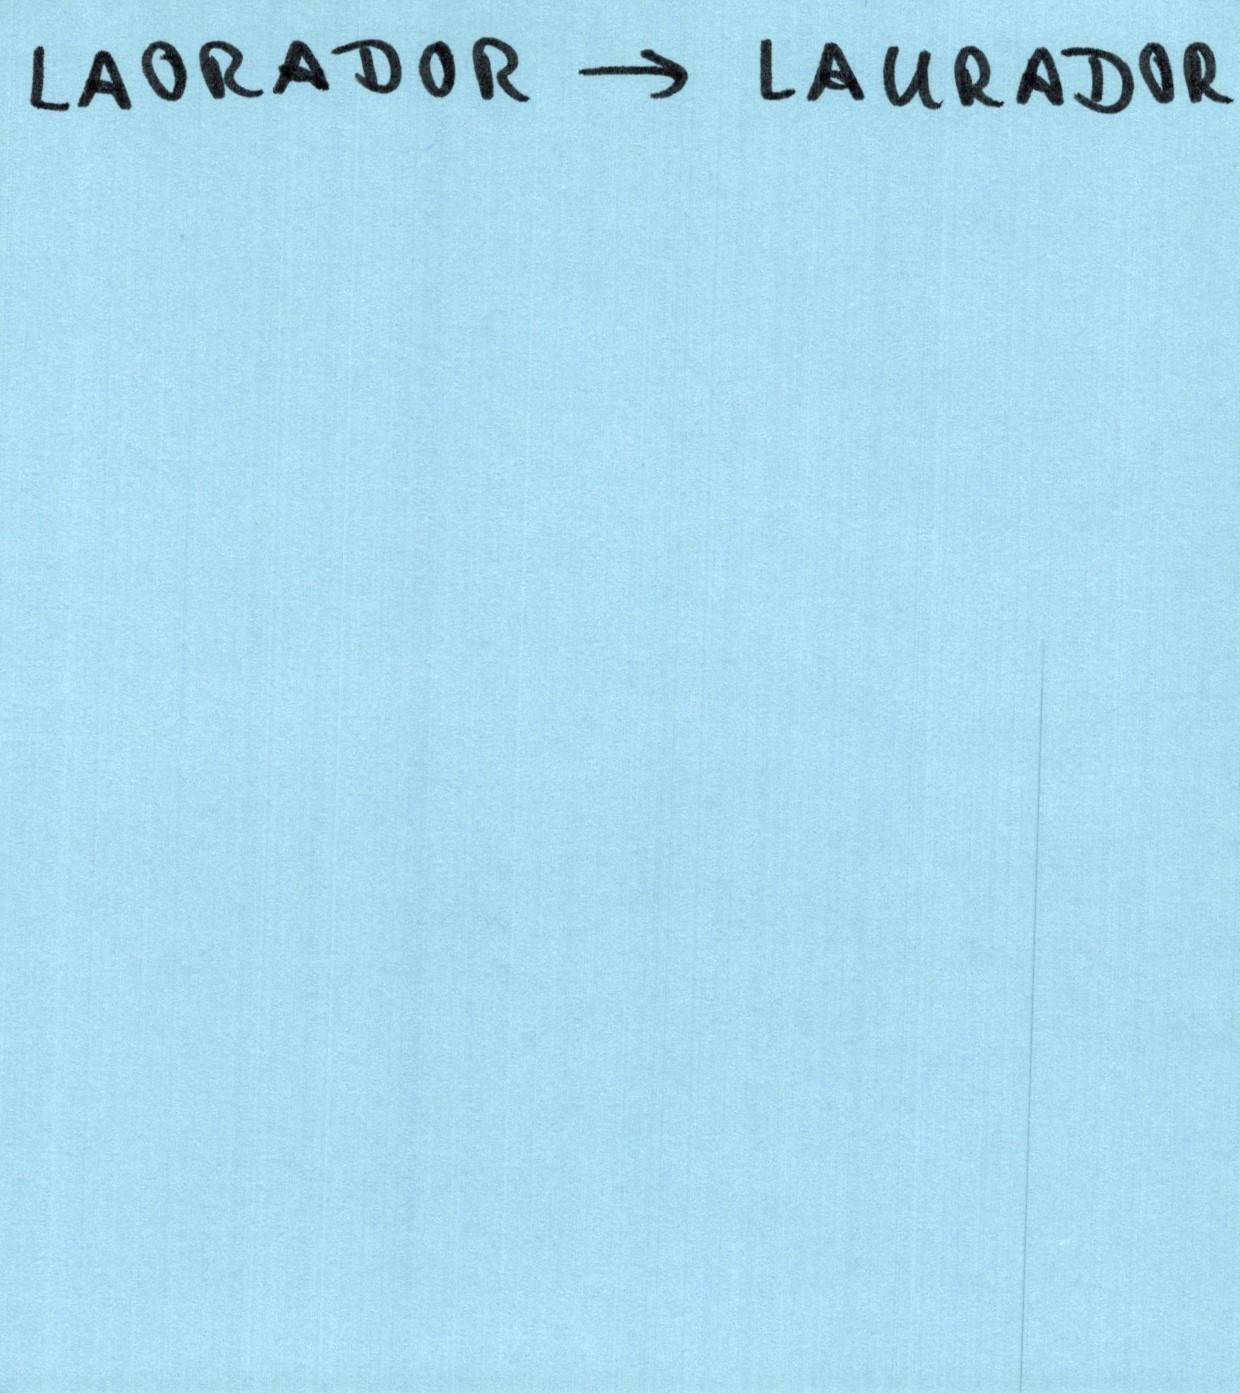 LAORADOR → LAURADOR